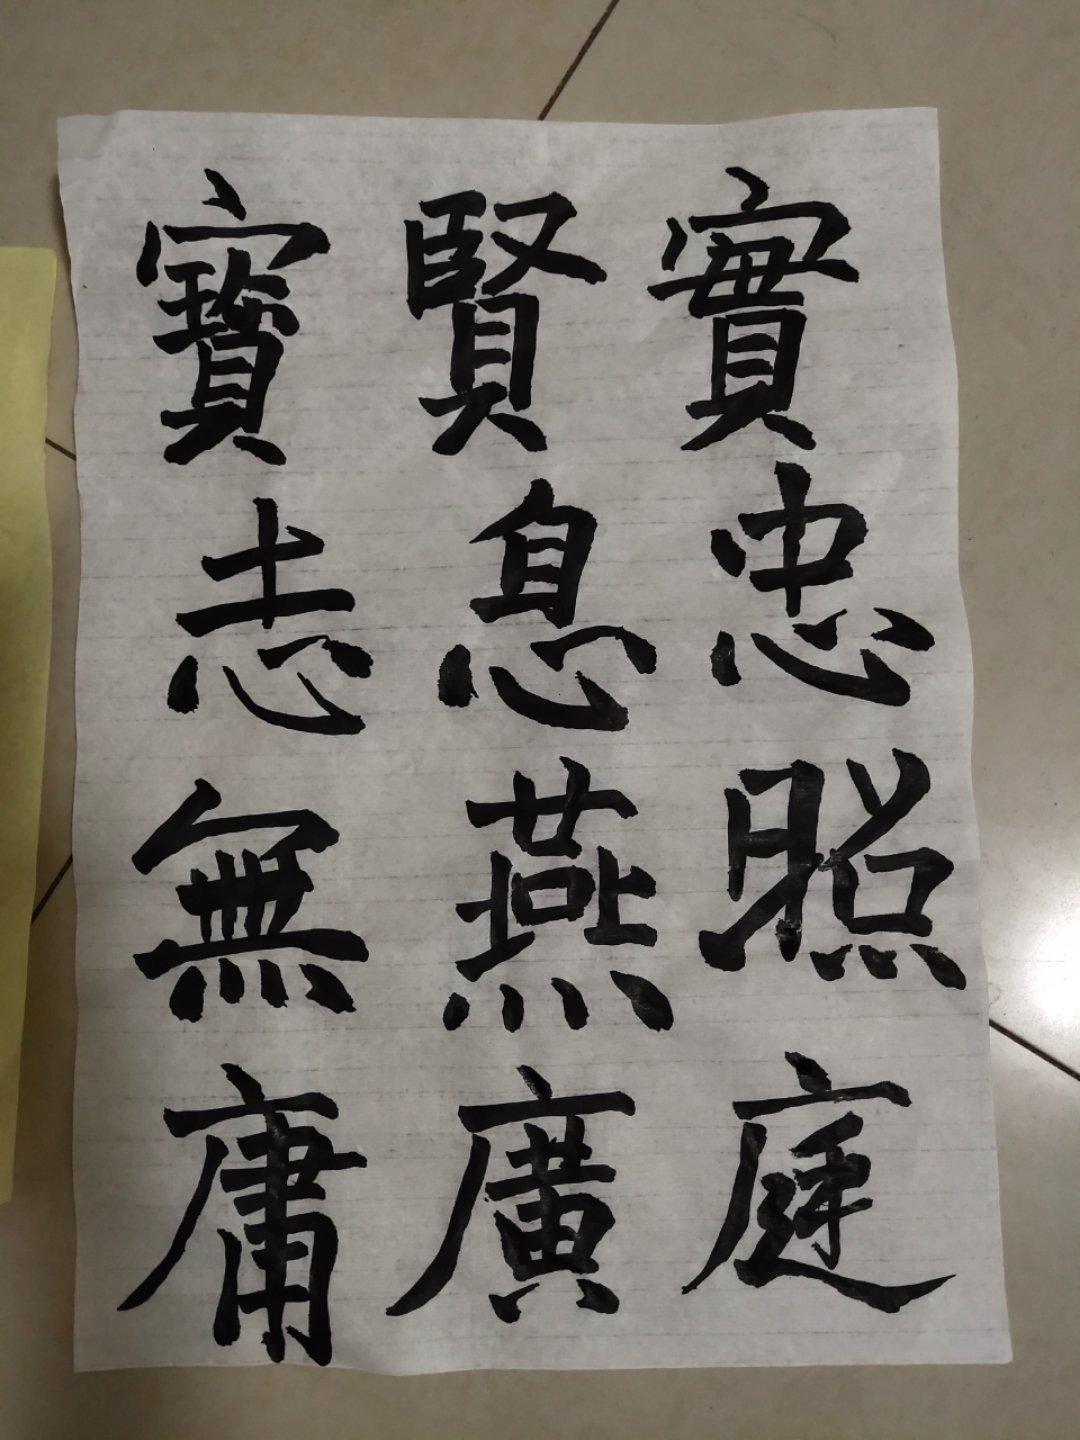 實忠照庭
賢息燕廣
寶志無庸